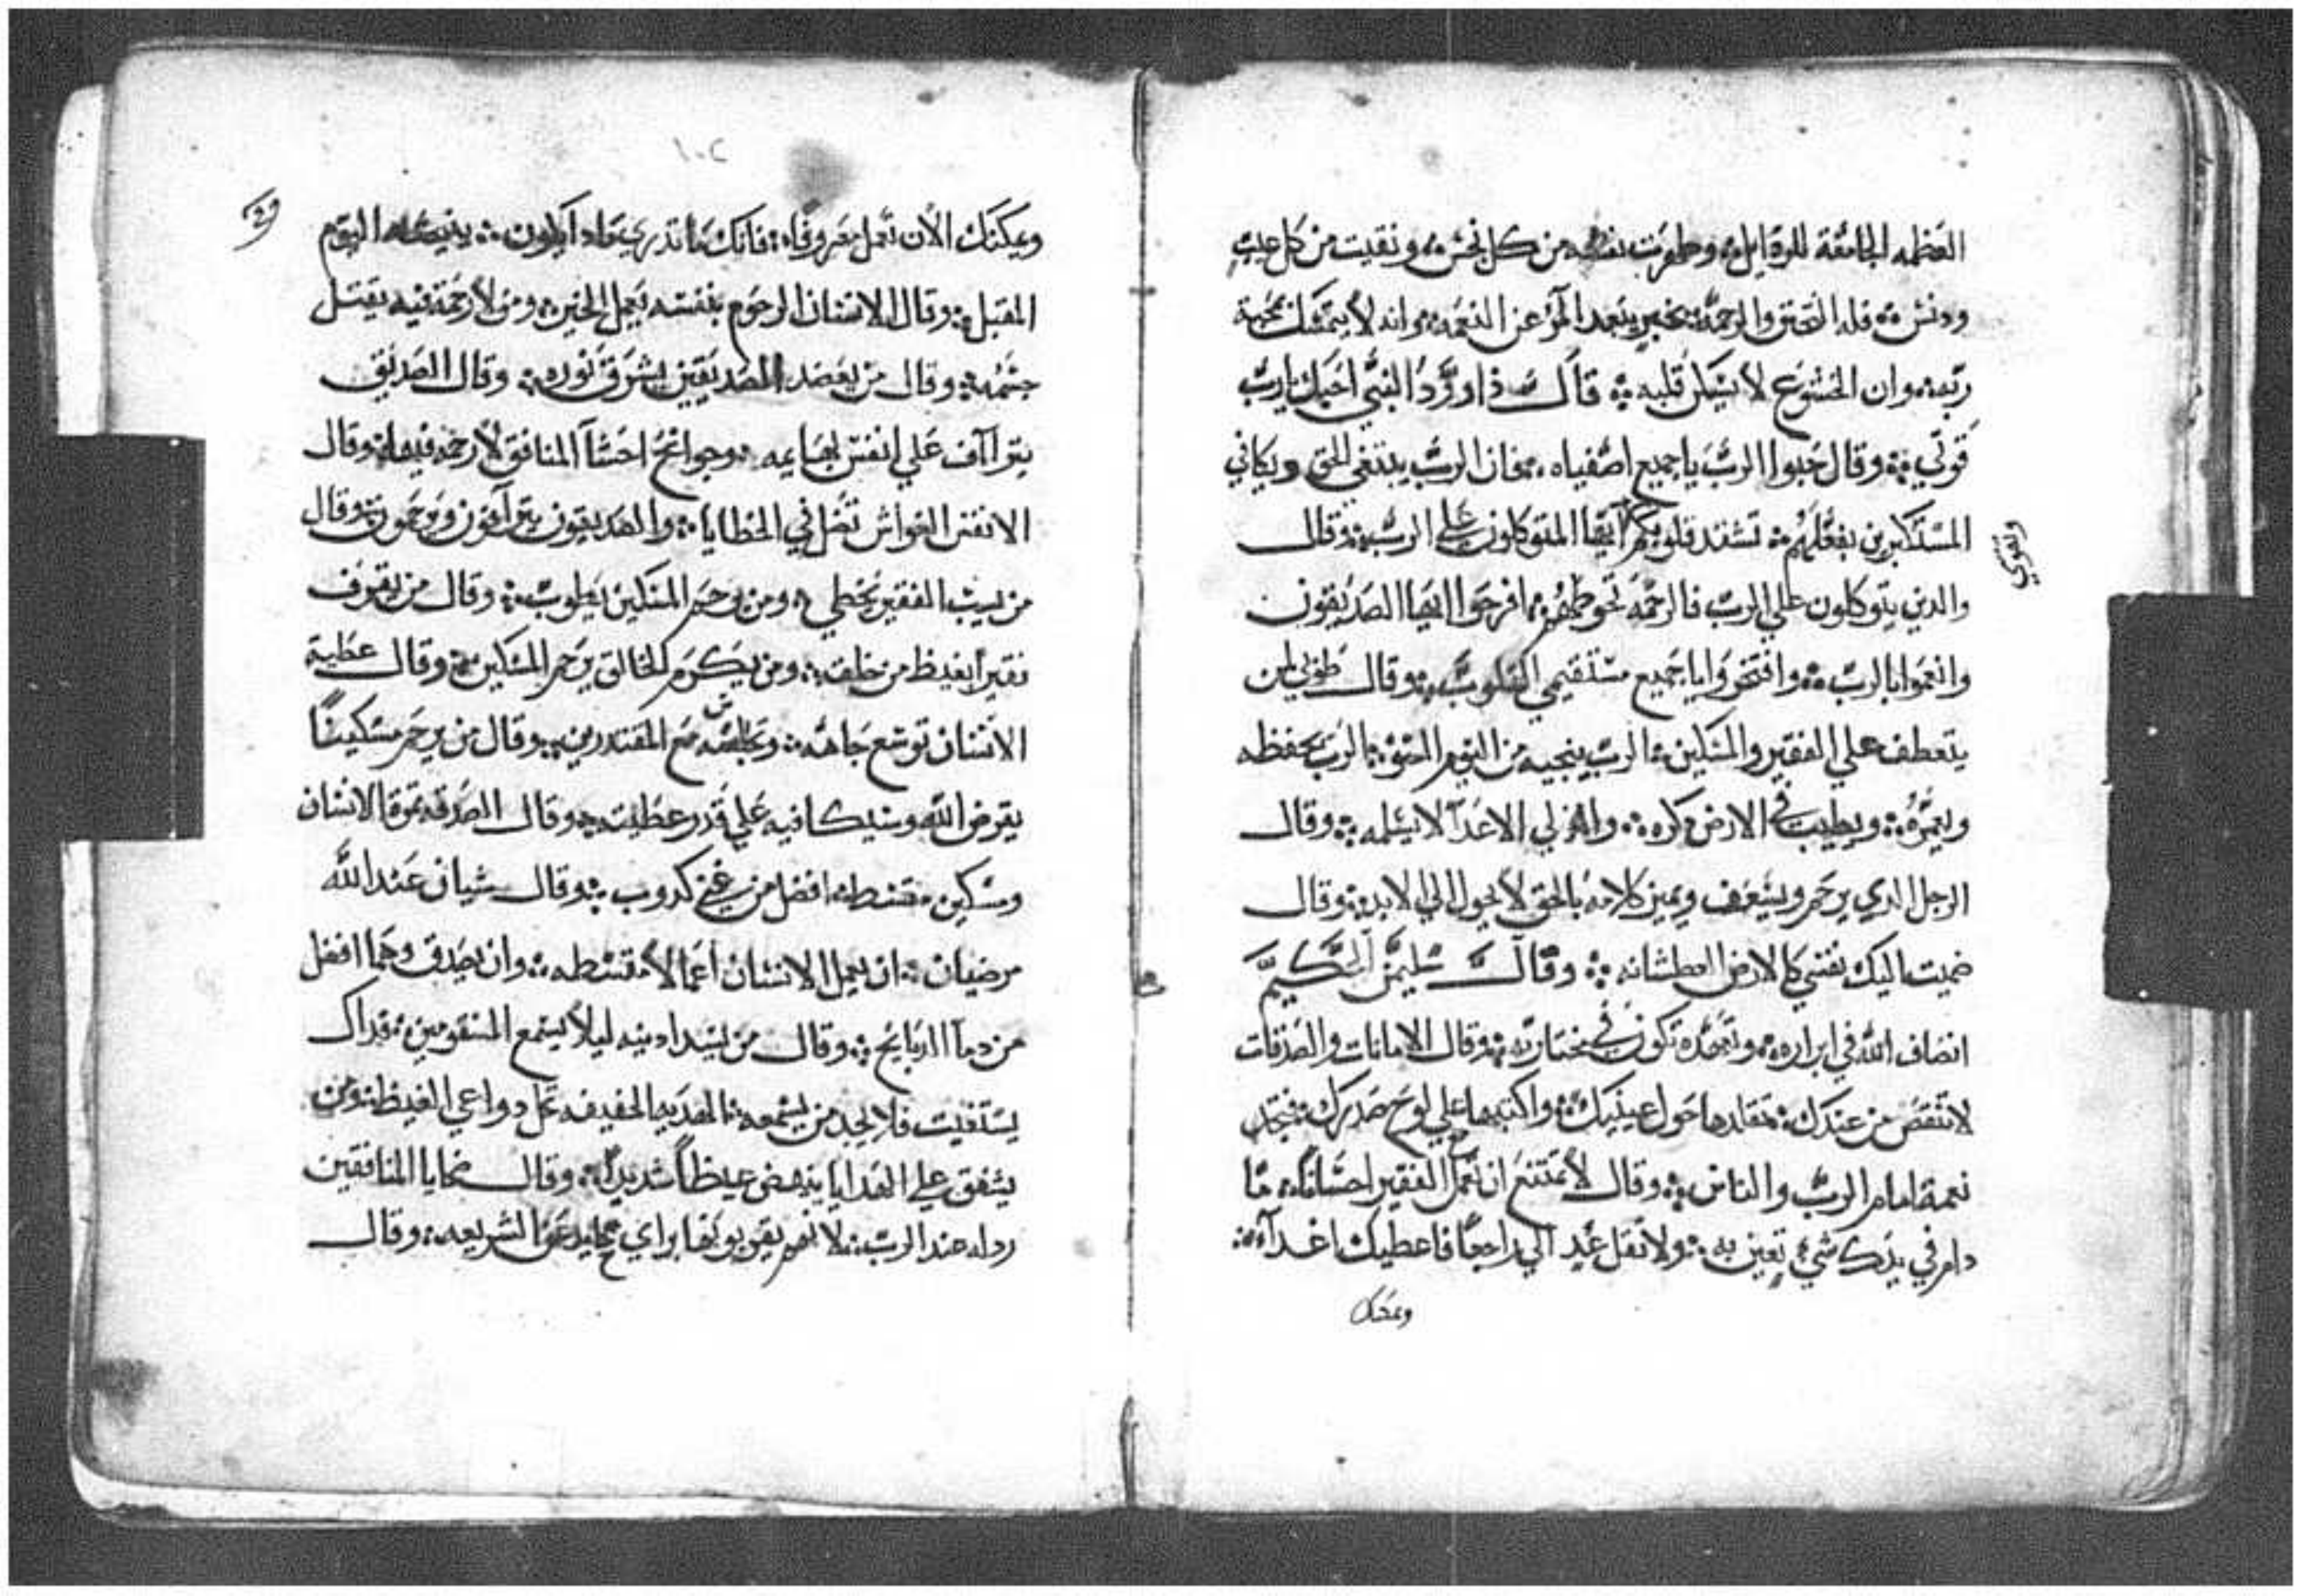 العظمه الجامعة للرذايل؞ وطهرت نفسه من كل نجس؞ ونقيت من كل عيب
ودنس؞ فله التحنن والرحمة؞ بعد المرء عن النعمه؞ وانه لا يتمسك بمحبة
ربه؞ وان الخشوع لا يسكن قلبه؞ قال داوود النبي احبك يارب
قوتي؞ وقال حبوا الرب يا جميع اصفياه؞ فان الرب يبتغي الحق ويكافي
المستكبرين بفعلهم؞ تشتد قلوبكم ايها المتوكلون علي الرب؞ وقال
والدين يتوكلون علي الرب فالرحمه تحوطهم؞ افرحوا ايها الصديقون
وانعموا بالرب؞ وافتخروا يا جميع مستقيمي القلوب؞ وقال طوبي لمن
يتعطف علي الفقير والمسكين؞ الرب ينجيه من اليوم السو؞ الرب يحفظه
ويعمره؞ ويطيب في الارض دكره؞ والي الاعدآ لا يسلمه؞ وقال
الرجل الدي يرحم ويتعرف ويميز كلامه بالحق لا يحول الي الابد؞ وقال
ضميت اليك نفسي كالارض العطشانه؞ وقال سليمن الحكيم
انصاف الله في ابراره؞ وتعهده تكون في مختاريه؞ وقال الامانات والصدقات
لا تنقص من عندك؞ تقلدها حول عينيك؞ واكتبها علي لوح صدرك؞ فتجد
نعمة امام الرب والناس؞ وقال لا تمتنع ان تعمل مع الفقير احسانا؞ ما
دام في يدك شيء تعين به؞ ولا تقل عد الي راجعا فاعطيك اغدآ؞
ويمكنك
ويمكنك الان تعمل معروفا؞ فانك ما تدري مادا يكون؞ اليوم
المقبل؞ وقال الانسان الرحوم بنفسه يعمل الخير؞ ومن لا رحمة فيه يقتل
جسمه؞ وقال من يعضد الصديقين يشرق نوره؞ وقال الصديق
يتراآف علي انفس بهايمه؞ وجوانح احشآ المنافق لا رحمه فيها؞ وقال
الانفس الغواش تضل في الخطايا؞ والصديقون يترآفون ويرحمون؞ وقال
من يسب الفقير يخطي؞ ومن يرحم المسكين يطوب؞ وقال من يقرف
فقيرا يغيظ من خلقه؞ ومن يكرم الخالق يرحم المسكين؞ وقال عطية
الانسان توسع جاهه؞ وتجلسه مع المقتدرين؞ وقال من يرحم مسكينا
يقرض الله وسيكافيه علي قدر عطيته؞ وقال الصدقه ثمرة الانسان
ومسكين مقسط افضل من غني كدوب؞ وقال شيان عند الله
مرضيان؞ ان يعمل الانسان اعمالا مقسطه؞ وان يصدق وهما افضل
من دمآ الدبايح؞ وقال من يسد ادنيه ليلا يسمع المسقومين؞ فداك
يستغيث فلا يجد من يسمعه؞ الهديه الخفيفه تحل دواعي الغيظ؞ ومن
يشفق علي الهدايا ينهض غيظا شديدا؞ وقال ضحايا المنافقين
رداله عند الرب؞ لانهم يقربونها براي محايد عن الشريعه؞ وقال